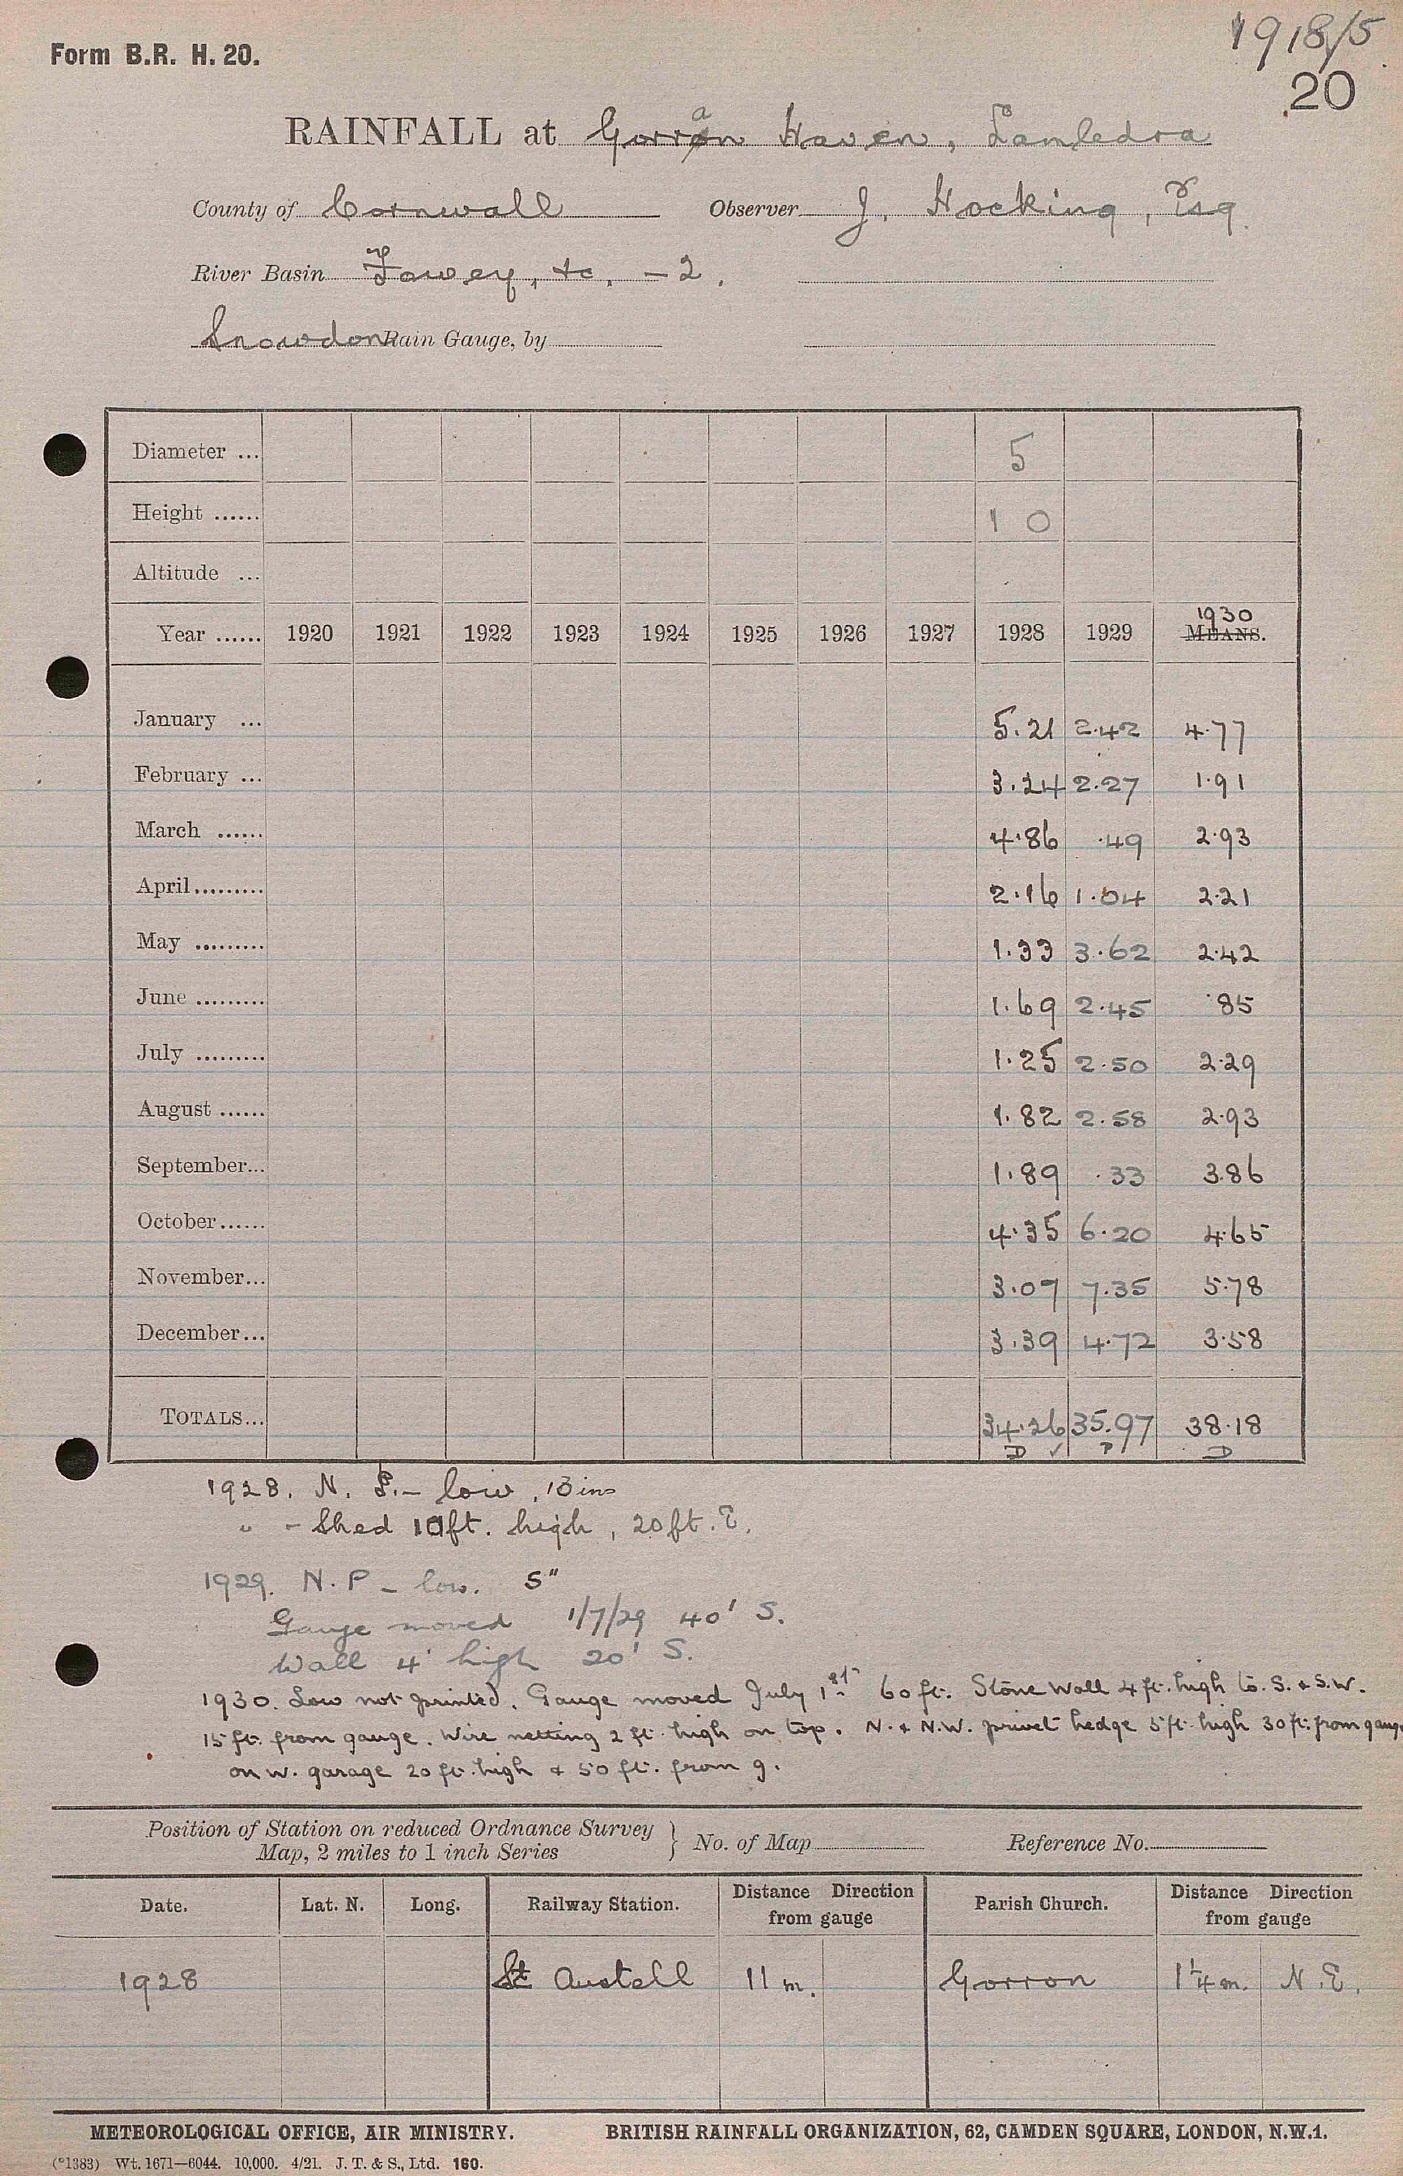 Form B.R. H. 20.
1918/5
20
RAINFALL at Gorran Haven, Lamledra
County of Cornwall Observer J. Hocking, Esq.
River Basin Fowey, &c. - 2.
Snowdon Rain Gauge, by
Diameter ... 5
Height ...... 1 0
Altitude ...
Year ...... 1920 1921 1922 1923 1924 1925 1926 1927 1928 1929 1930 MEANS.
January ... 5.21 2.42 4.77
February ... 3.24 2.27 1.91
March ...... 4.86 .49 2.93
April......... 2.16 1.04 2.21
May ......... 1.33 3.62 2.42
June ......... 1.69 2.45 .85
July ......... 1.25 2.50 2.29
August ...... 1.82 2.58 2.93
September... 1.89 .33 3.86
October...... 4.35 6.20 4.65
November... 3.07 7.35 5.78
December... 3.39 4.72 3.58
TOTALS... 34.26 35.97 38.18
D ✓ P D
1928. N. P. - low. 13 ins
" - Shed 10ft. high, 20ft. E.
1929. N.P - low. 5"
Gauge moved 1/7/29 40' S.
Wall 4' high 20' S.
1930. Low not printed. Gauge moved July 1st 60 ft. Stone wall 4 ft. high to. S. & S.W.
15 ft. from gauge. Wire netting 2 ft high on top. N. & N.W. privet hedge 5 ft high 30 ft. from gauge
on W. garage 20 ft. high & 50 ft. from g.
Position of Station on reduced Ordnance Survey
Map, 2 miles to 1 inch Series } No. of Map Reference No.
Date. Lat. N. Long. Railway Station. Distance Direction from gauge Parish Church. Distance Direction from gauge
1928 St Austell 11 m. Gorron 1¼ m. N.E.
METEOROLOGICAL OFFICE, AIR MINISTRY. BRITISH RAINFALL ORGANIZATION, 62, CAMDEN SQUARE, LONDON, N.W.1.
(*1383) Wt. 1671—6044. 10,000. 4/21. J. T. & S., Ltd. 160.